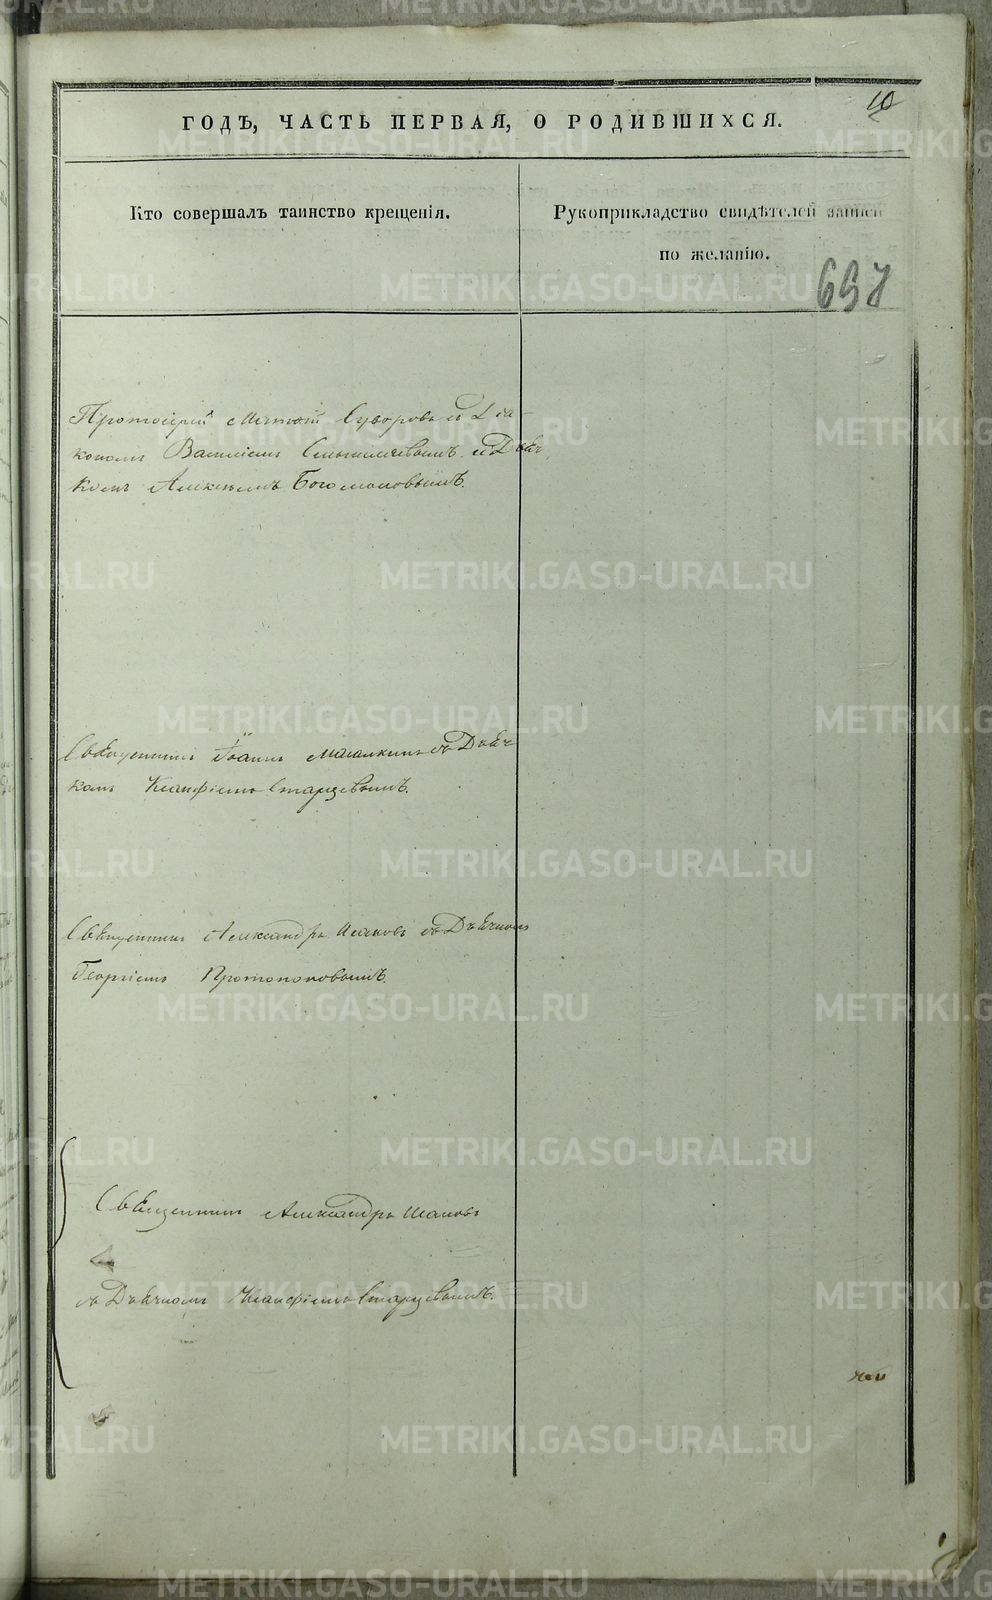 10
ГОДЪ, ЧАСТЬ ПЕРВАЯ, О РОДИВШИХСЯ.
Кто совершалъ таинство крещенія.
Рукоприкладство свидѣтелей записи
по желанію.
697
Протоіерей Суворовъ съ Діа-
кономъ Василіемъ и Дьяч
комъ Алексѣемъ Богомоловымъ.
Священникъ Іоаннъ съ Дьяч
комъ Старцевымъ.
Священникъ Александръ съ Дьячкомъ
Георгіемъ Протопоповымъ.
Священникъ Александръ
съ Дьячкомъ Старцевымъ.
METRIKI.GASO-URAL.RU